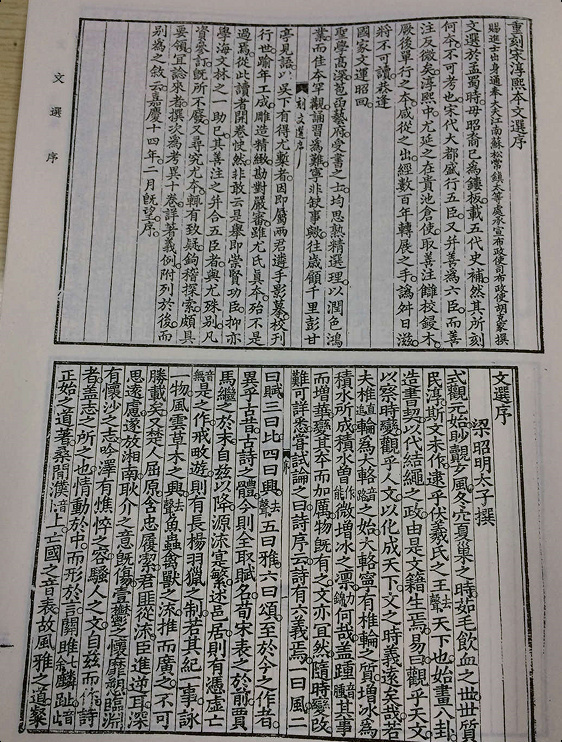 重刻宋淳熙本文選序
賜進士出身通奉大夫江南蘇松常鎮太等處承宣布政使司布政使胡克家撰
文選於孟蜀時毋昭裔已為鏤板載五代史補然其所刻
何本不可考也宋代大都盛行五臣又并善為六臣而善
注反微矣淳熙中尤延之在貴池倉使取善注讎校鋟木
厥後單行之本咸從之出經數百年轉展之手譌舛日滋
將不可讀恭逢
國家文運昭回
聖學高深苞函藝府受書之士均思熟精選理以潤色鴻
業而佳本罕覯誦習為難寧非缺事歟往歲顧千里彭甘
文選序
亭見語以吳下有得尤槧者因即屬兩君遴手影摹校刊
行世踰年工成雕造精緻勘對嚴審雖尤氏真本殆不是
過焉從此讀者開卷快然非敢云是舉即崇賢功臣抑亦
學海文林之一助已其善注之并合五臣者與尤殊別凡
資參訂既所不廢又尋究尤本輒有致疑鉤稽探索頗具
要領宜諗來者撰次為考異十卷詳著義例附列於後而
別為之敘云嘉慶十四年二月既望序
文選序
文選序
梁昭明太子撰
式觀元始眇覿玄風冬穴夏巢之時茹毛飲血之世世質
民淳斯文未作逮乎伏羲氏之王去聲天下也始畫八卦
造書契以代結繩之政由是文籍生焉易曰觀乎天文
以察時變觀乎人文以化成天下文之時義遠矣哉若
夫椎直追輪為大輅音路之始大輅寧有椎輪之質增冰為
積水所成積水曾微增冰之凜何哉蓋踵其事
而增華變其本而加厲物既有之文亦宜然隨時變改
難可詳悉嘗試論之曰詩序云詩有六義焉一曰風二
曰賦三曰比四曰興去聲五曰雅六曰頌至於今之作者
異乎古昔古詩之體今則全取賦名荀宋表之於前賈
馬繼之於末自茲以降源流寔繁述邑居則有憑虛亡
音無是之作戒畋遊則有長楊羽獵之制若其紀一事詠
一物風雲草木之興去聲魚蟲禽獸之流推而廣之不可
勝載矣又楚人屈原含忠履潔君匪從流臣進逆耳深
思遠慮遂放湘南耿介之意既傷壹鬱之懷靡愬臨淵
有懷沙之志吟澤有憔悴之容騷人之文自茲而作詩
者蓋志之所之也情動於中而形於言關雎麟趾
正始之道著桑間濮音卜上亡國之音表故風雅之道粲